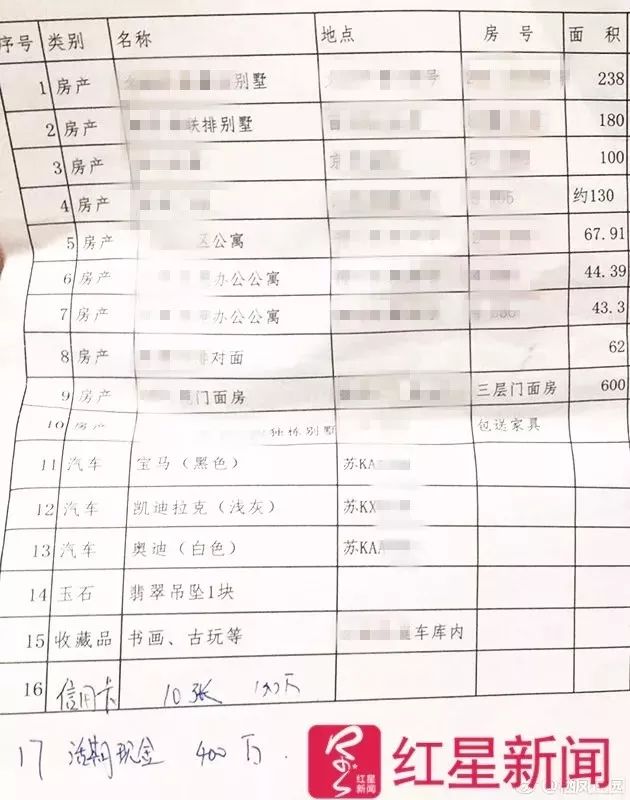 序号 类别 名称 地点 房号 面积
1 房产 别墅 号 238
2 房产 联排别墅 180
3 房产 京 100
4 房产 约130
5 房产 区公寓 67.91
6 房产 办公公寓 44.39
7 房产 办公公寓 43.3
8 房产 对面 62
9 房产 门面房 三层门面房 600
10 房产 独栋别墅 包送家具
11 汽车 宝马（黑色） 苏KA
12 汽车 凯迪拉克（浅灰） 苏KX
13 汽车 奥迪（白色） 苏KA
14 玉石 翡翠吊坠1块
15 收藏品 书画、古玩等 车库内
16 信用卡 10张
17 活期现金 400万.
红星新闻
红星新闻